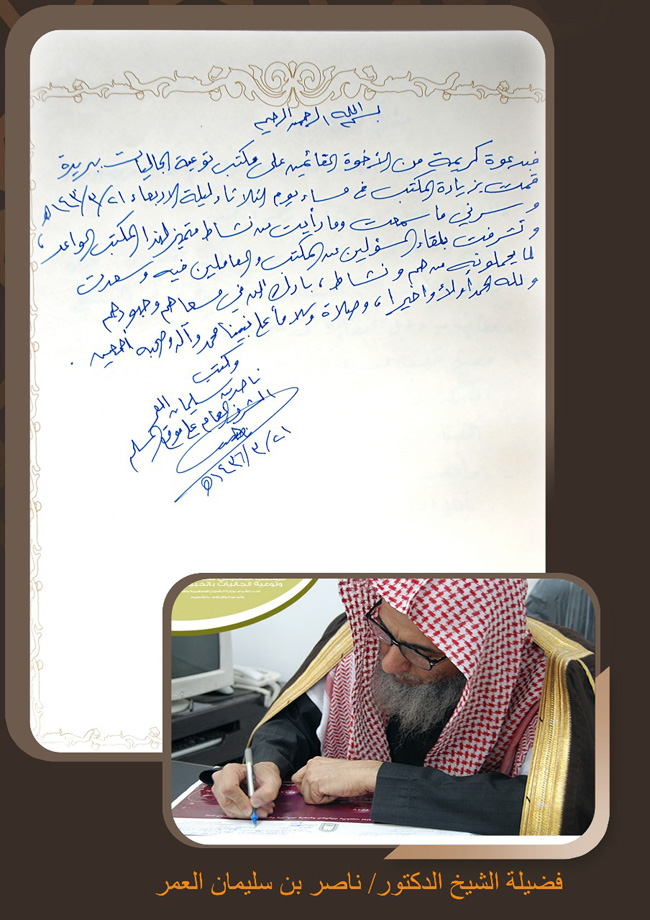 بسم الله الرحمن الرحيم
فبدعوة كريمة من الأخوة القائمين على مكتب توعية الجاليات ببريدة
قمت بزيارة المكتب في مساء يوم الثلاثاء ليلة الاربعاء ١٤٣٦/٣/٢١هـ
وسرني ما سمعت وما رأيت من نشاط متميز لهذا المكتب الواعد،
وتشرفت بلقاء المسؤولين عن المكتب والعاملين فيه وسعدت
لما يحملونه من هم ونشاط، بارك الله في مسعاهم وجهودهم
ولله الحمد أولا وأخيرا، وصلاة وسلاما على نبينا محمد وآله وصحبه أجمعين.
وكتب
ناصر بن سليمان العمر
المشرف العام على موقع المسلم
١٤٣٦/٣/٢١هـ
وتوعية الجاليات
فضيلة الشيخ الدكتور/ ناصر بن سليمان العمر